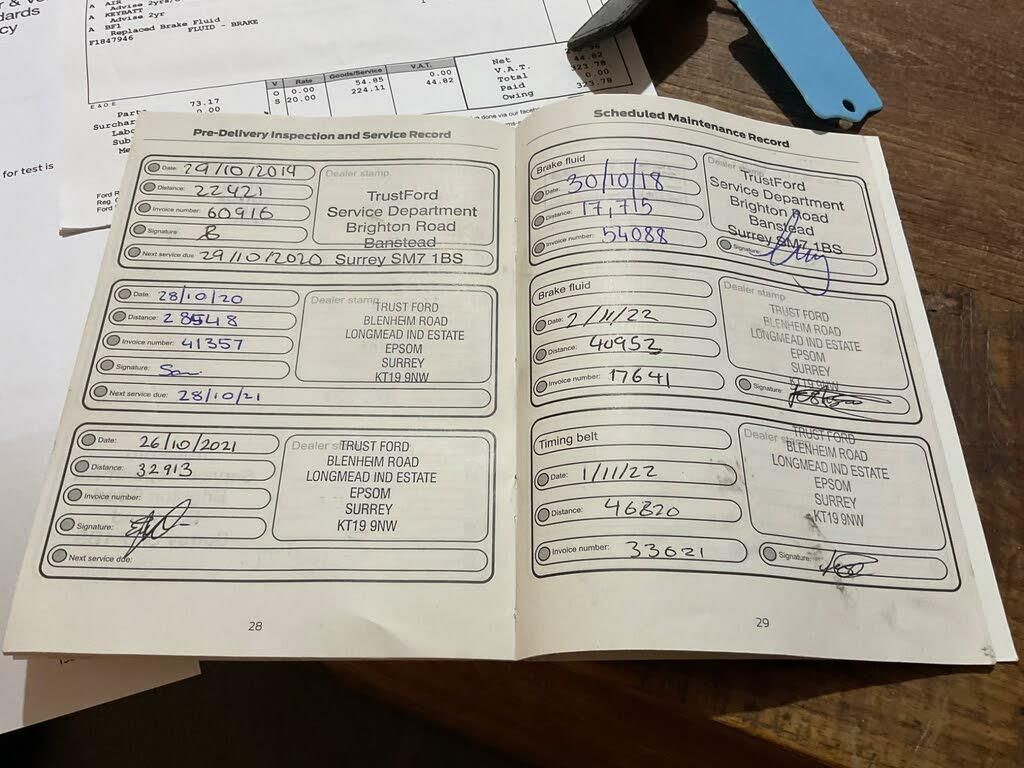 dards
cy
for test is
A AIR
Advise 2yrs/
A KEYBATT
Advise 2yr
A BF1
Replaced Brake Fluid
F1847946 FLUID - BRAKE
V Rate Goods/Service V.A.T.
O 0.00 54.85 0.00
S 20.00 224.11 44.82
Net
V.A.T. 44.82
Total 323.78
Paid 0.00
Owing 323.78
E & O E
Part 73.17
Surchar 0.00
Lab
Sub
Me
done via our faceb
Ford R
Reg. O
Ford
Pre-Delivery Inspection and Service Record
Date: 29/10/2019
Distance: 22421
Invoice number: 60916
Signature:
Next service due: 29/10/2020
Dealer stamp
TrustFord
Service Department
Brighton Road
Banstead
Surrey SM7 1BS
Date: 28/10/20
Distance: 28548
Invoice number: 41357
Signature:
Next service due: 28/10/21
Dealer stamp
TRUST FORD
BLENHEIM ROAD
LONGMEAD IND ESTATE
EPSOM
SURREY
KT19 9NW
Date: 26/10/2021
Distance: 32913
Invoice number:
Signature:
Next service due:
Dealer s
TRUST FORD
BLENHEIM ROAD
LONGMEAD IND ESTATE
EPSOM
SURREY
KT19 9NW
28
Scheduled Maintenance Record
Brake fluid
Date: 30/10/18
Distance: 17,715
Invoice number: 54088
Dealer stamp
TrustFord
Service Department
Brighton Road
Banstead
Surrey SM7 1BS
Signature:
Brake fluid
Date: 2/11/22
Distance: 40953
Invoice number: 17641
Dealer stamp
TRUST FORD
BLENHEIM ROAD
LONGMEAD IND ESTATE
EPSOM
SURREY
KT19 9NW
Signature:
Timing belt
Date: 1/11/22
Distance: 46820
Invoice number: 33621
Dealer s
TRUST FORD
BLENHEIM ROAD
LONGMEAD IND ESTATE
EPSOM
SURREY
KT19 9NW
Signature:
29